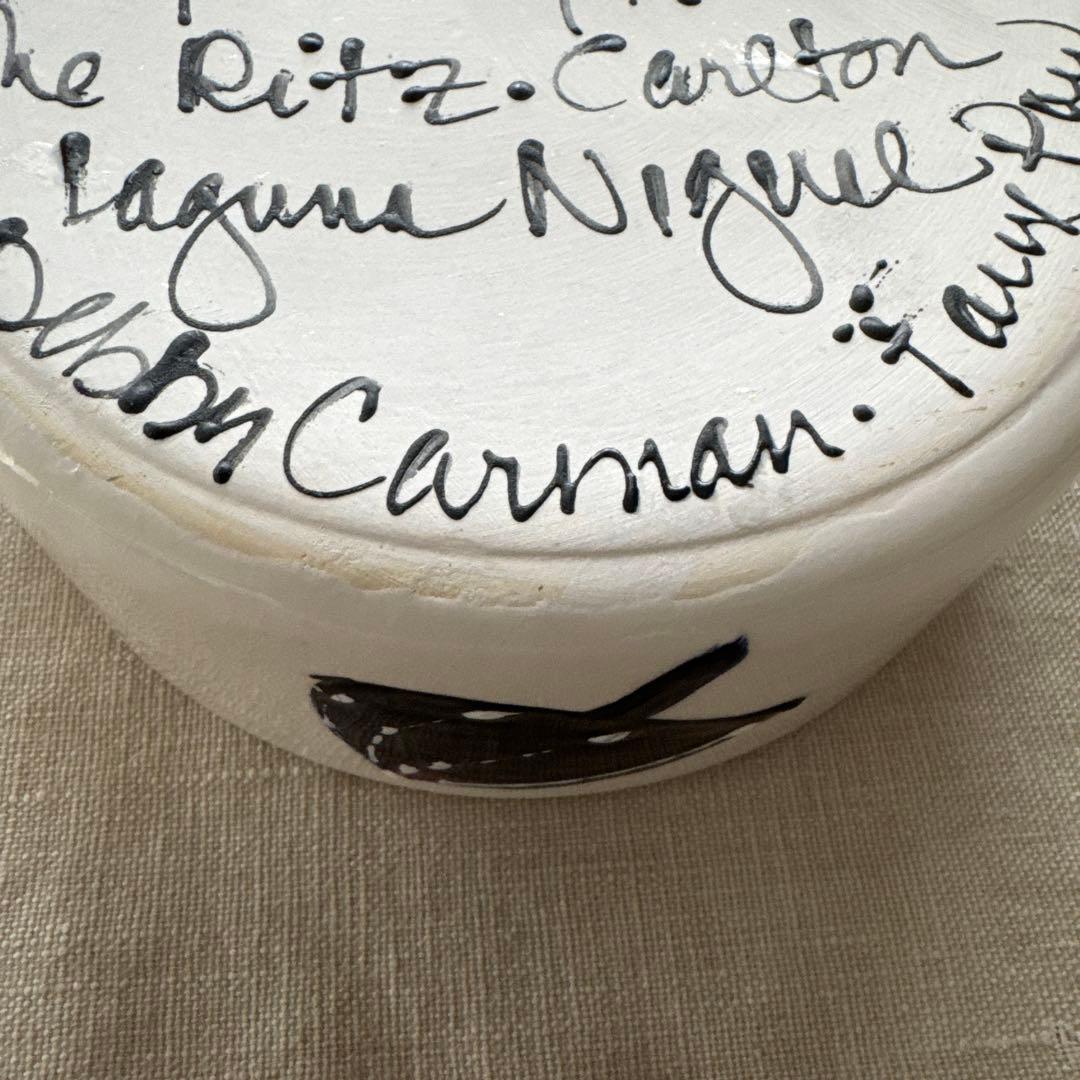 he Ritz. Carlton
Laguna Niguel
Debby Carman.